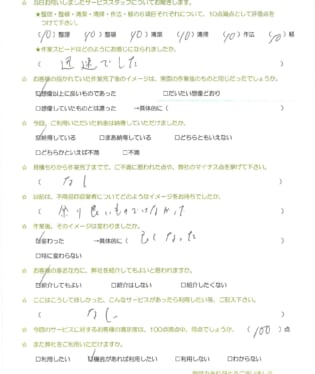 ☆ 当日お伺いしましたサービススタッフについてお聞きします。
★整理・整頓・清潔・清掃・作法・躾の6項目それぞれについて、10点満点として評価点を
つけて下さい。
(10)整理 (10)整頓 (10)清潔 (10)清掃 (10)作法 (10)躾
★作業スピードはどのようにお感じになられましたか。
( 迅速でした )
☆ お客様の描かれていた作業完了後のイメージは、実際の作業後のものと同じだったでしょうか。
☑想像以上に良いものであった □だいたい想像どおり
□想像していたものとは違った →具体的に( )
☆ 今回、ご利用いただいた料金は納得していただけましたか。
☑納得している □まあ納得している □どちらともいえない
□どちらかといえば不満 □不満
☆ 見積もりから作業完了までで、ご不満に思われた点や、弊社のマイナス点を挙げて下さい。
( なし )
☆ 以前は、不用品回収業者についてどのようなイメージをお持ちでしたか。
( 余り良いものではなかった )
☆ 作業後、そのイメージは変わりましたか。
☑変わった →具体的に( 良くなった )
□特に変わらない
☆ お客様の身近な方に、弊社を紹介してもよいと思われますか。
☑紹介してもよい □紹介はしない □紹介したくない
☆ ここはこうしてほしかった、こんなサービスがあったら利用したい等、ご記入下さい。
( なし )
☆ 今回のサービスに対するお客様の満足度は、100点満点中、何点でしょうか。 (100)点
☆ また弊社をご利用いただけますか。
□利用したい ☑機会があれば利用したい □利用しない □わからない